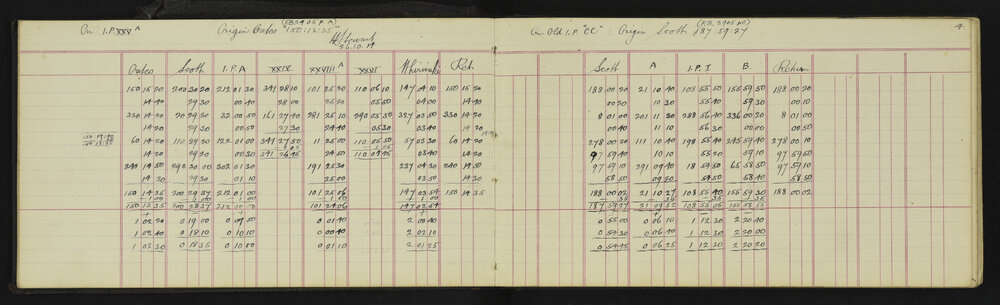 On I.P. XXV A Origin Oates "150:13:35"
26.10.
Oates Scoth I.P.A XXIX XXVIII A XXVI Whiriwaki Ret.
150 15 20 200 30 20 212 01 30 341 28 10 101 25 20 110 06 10 147 04 10 150 15 20
14 40 29 30 00 40 28 00 25 20 05 50 04 00 14 40
330 14 20 20 29 30 32 00 50 161 27 40 281 25 10 290 05 50 327 03 50 330 14 20
14 20 29 30 00 50 27 30 24 40 05 30 03 40 14 20
60 14 20 110 29 20 122 01 00 341 27 50 11 25 00 110 05 50 57 03 30 60 14 20
14 20 29 20 00 30 341 26 45 24 50 110 04 45 03 40 14 40
240 14 50 290 30 00 302 01 30 191 25 30 237 04 30 240 14 50
14 20 29 30 01 10 25 00 03 50 14 30
150 14 35 200 29 37 212 01 00 101 25 06 147 03 54 150 14 35
1 00 1 00 1 00 1 00 1 00
150 13 35 200 28 37 212 00 00 101 24 06 147 02 54
1 02 20 0 19 00 0 09 00 0 01 40 2 00 40
1 02 40 0 18 10 0 10 10 0 00 40 2 02 10
1 02 30 0 18 35 0 10 00 0 01 10 2 01 25
On Old I.P. "CC" : Origin Scoth 187:59:27 4
Scoth A I.P. I B. Return
188 00 20 21 10 40 108 55 50 155 59 50 188 00 20
00 20 10 30 55 40 59 30 00 10
8 01 00 201 11 30 288 56 40 336 00 20 8 01 00
00 40 11 10 56 30 00 00 00 50
278 00 20 111 10 40 198 55 40 245 59 40 278 00 10
97 59 40 10 10 55 20 59 10 97 59 50
97 59 10 291 09 40 18 54 50 65 58 50 97 59 10
58 50 09 20 54 50 58 40 58 50
188 00 02 21 10 27 108 55 40 155 59 30 188 00 02
35 35 35 35
187 59 27 21 09 52 108 55 05 155 58 55
0 55 00 0 06 10 1 12 30 2 20 40
0 54 30 0 06 40 1 12 30 2 20 00
0 54 45 0 06 25 1 12 30 2 20 20